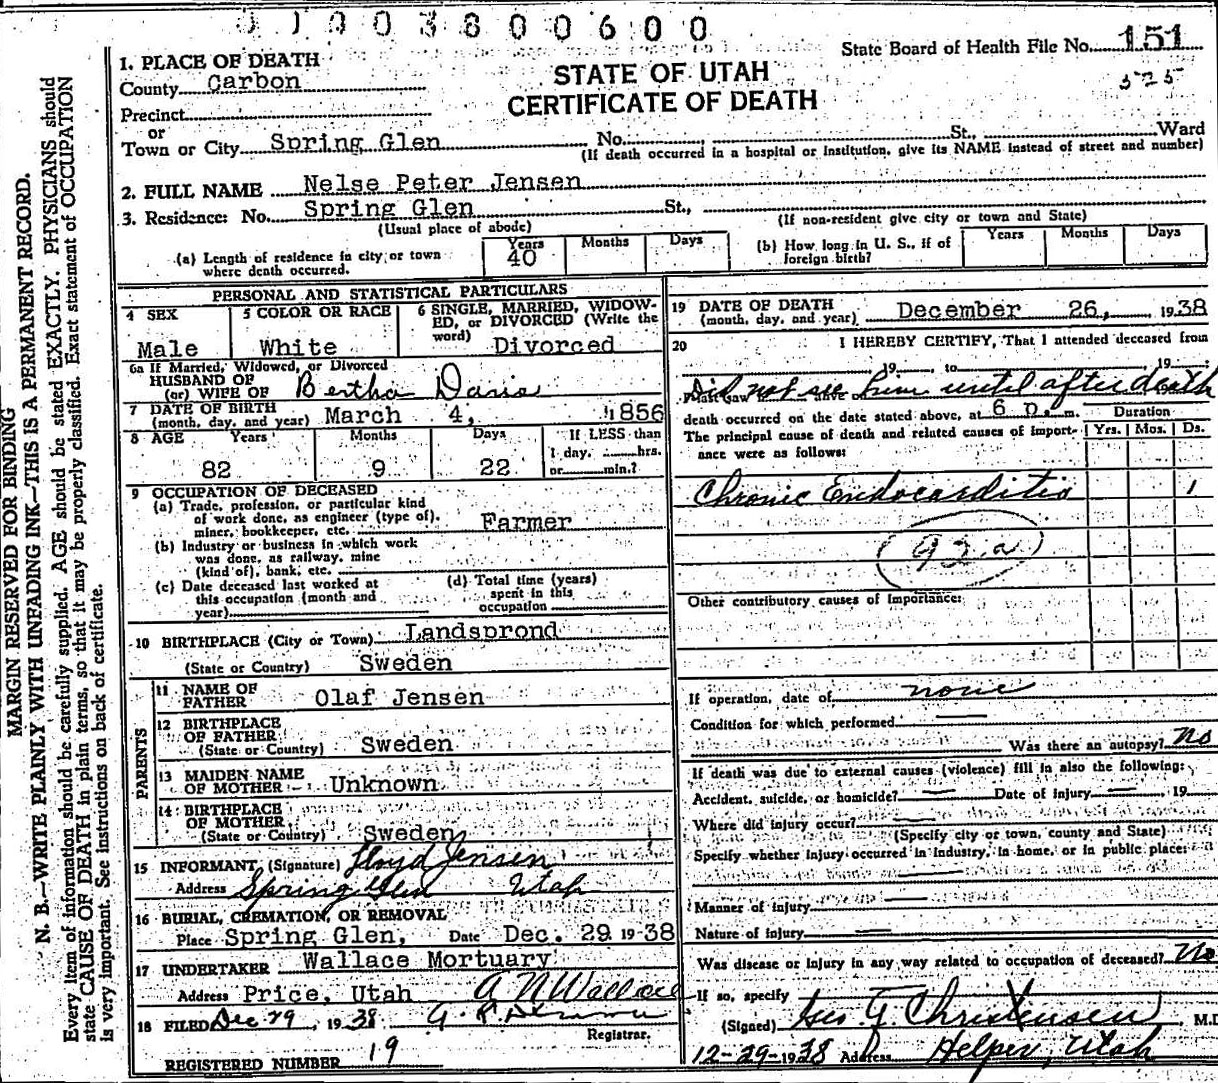 0 1 0 0 3 8 0 0 6 0 0
State Board of Health File No. 151
325
STATE OF UTAH
CERTIFICATE OF DEATH
MARGIN RESERVED FOR BINDING
N. B.—WRITE PLAINLY WITH UNFADING INK—THIS IS A PERMANENT RECORD.
Every item of information should be carefully supplied. AGE should be stated EXACTLY. PHYSICIANS should
state CAUSE OF DEATH in plain terms, so that it may be properly classified. Exact statement of OCCUPATION
is very important. See instructions on back of certificate.
1. PLACE OF DEATH
County Carbon
Precinct
or
Town or City Spring Glen No. St., Ward
(If death occurred in a hospital or institution, give its NAME instead of street and number)
2. FULL NAME Nelse Peter Jensen
3. Residence: No. Spring Glen St.,
(Usual place of abode) (If non-resident give city or town and State)
(a) Length of residence in city or town where death occurred. Years 40 Months Days
(b) How long in U. S., if of foreign birth? Years Months Days
PERSONAL AND STATISTICAL PARTICULARS
4 SEX Male
5 COLOR OR RACE White
6 SINGLE, MARRIED, WIDOW-
ED, or DIVORCED (Write the
word) Divorced
6a If Married, Widowed, or Divorced
HUSBAND OF
(or) WIFE OF Bertha Davis
7 DATE OF BIRTH
(month, day, and year) March 4, 1856
8 AGE Years 82 Months 9 Days 22
If LESS than
1 day, hrs.
or min.?
9 OCCUPATION OF DECEASED
(a) Trade, profession, or particular kind
of work done, as engineer (type of),
miner, bookkeeper, etc. Farmer
(b) Industry or business in which work
was done, as railway, mine
(kind of), bank, etc.
(c) Date deceased last worked at
this occupation (month and
year)
(d) Total time (years)
spent in this
occupation
10 BIRTHPLACE (City or Town) Landsprond
(State or Country) Sweden
PARENTS
11 NAME OF
FATHER Olaf Jensen
12 BIRTHPLACE
OF FATHER
(State or Country) Sweden
13 MAIDEN NAME
OF MOTHER Unknown
14 BIRTHPLACE
OF MOTHER
(State or Country) Sweden
15 INFORMANT, (Signature) Floyd Jensen
Address Spring Glen Utah
16 BURIAL, CREMATION, OR REMOVAL
Place Spring Glen, Date Dec. 29 19 38
17 UNDERTAKER Wallace Mortuary
Address Price, Utah A N Wallace
18 FILED Dec 29, 19 38
Registrar.
REGISTERED NUMBER 19
19 DATE OF DEATH
(month, day, and year) December 26, 1938
20 I HEREBY CERTIFY, That I attended deceased from
19 , to 19
Did not see him until after death
death occurred on the date stated above, at 6 p. m.
The principal cause of death and related causes of import-
ance were as follows:
Duration
Yrs. Mos. Ds.
Chronic Endocarditis 1
92a
Other contributory causes of importance:
If operation, date of none
Condition for which performed
Was there an autopsy? No
If death was due to external causes (violence) fill in also the following:
Accident, suicide, or homicide? Date of injury , 19
Where did injury occur?
(Specify city or town, county and State)
Specify whether injury occurred in industry, in home, or in public place:
Manner of injury
Nature of injury
Was disease or injury in any way related to occupation of deceased? No
If so, specify
(Signed) Gus T. Christensen, M.D
12-29-1938 Address Helper, Utah